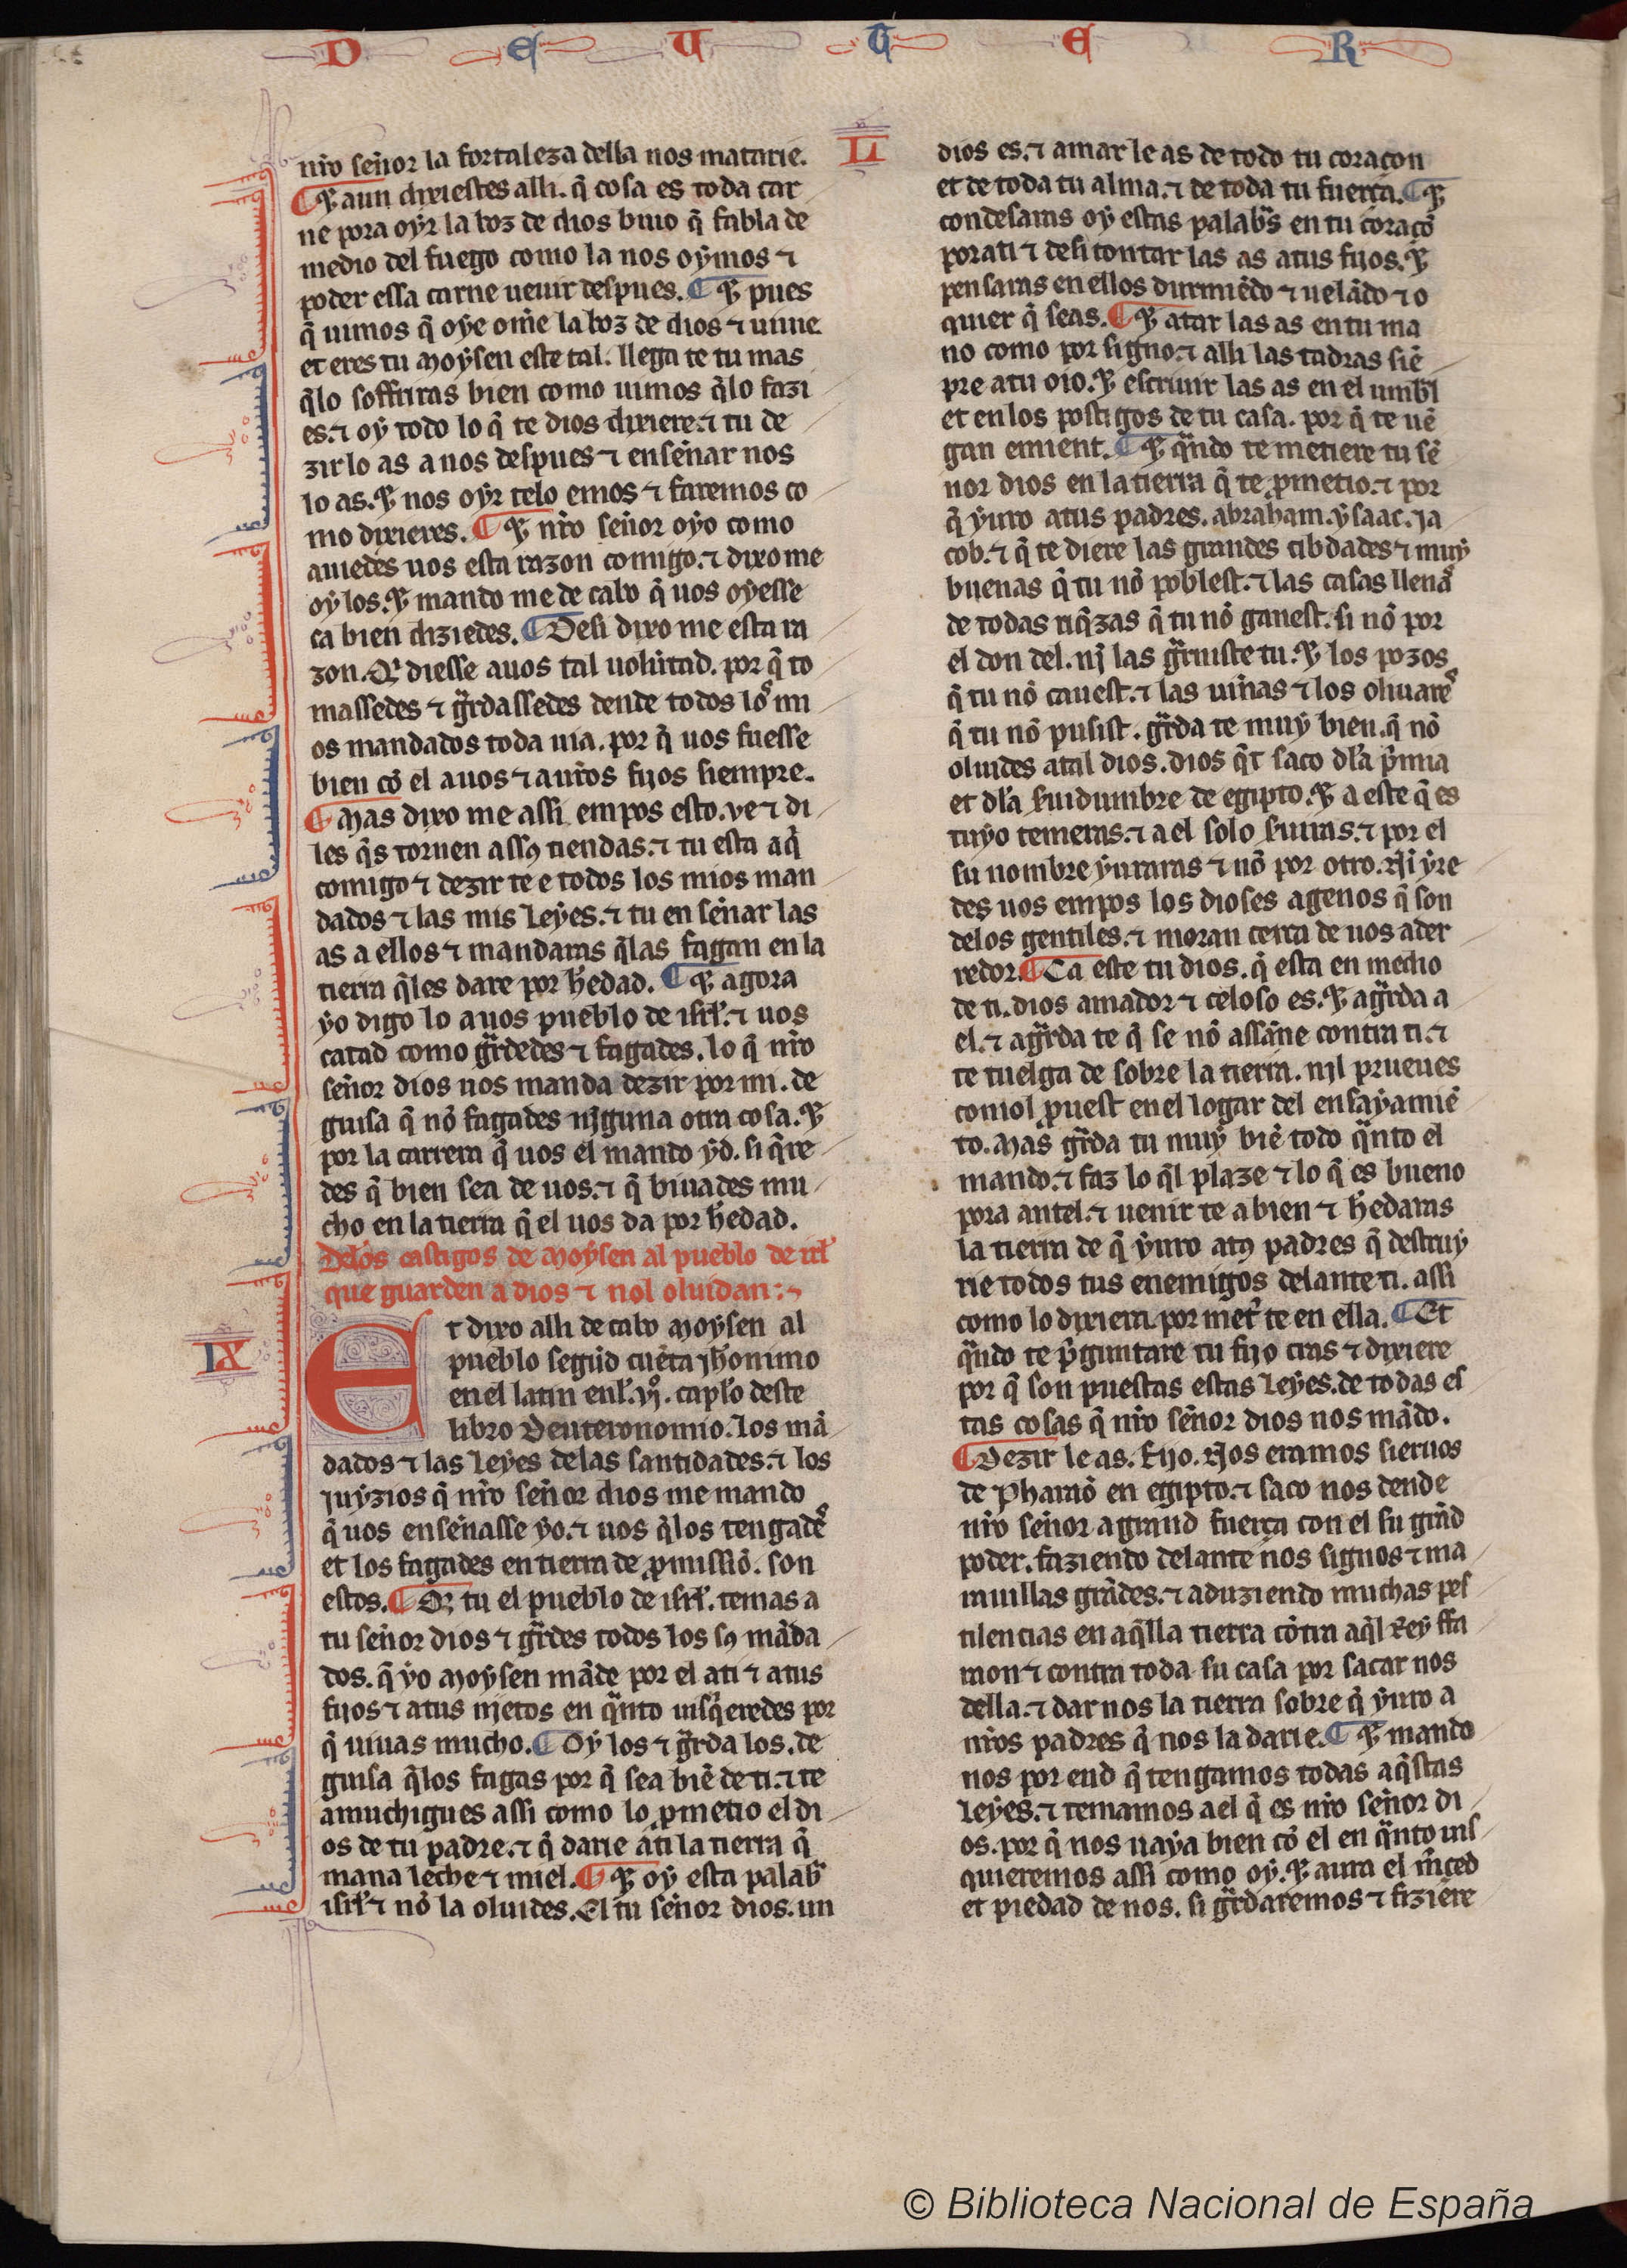 D E U T E R
nr̃o señor la fortaleza della nos matarie.
¶ Et aun dixiestes alli. q̃ cosa es toda car
ne pora oyr la boz de dios biuo q̃ fabla de
medio del fuego como la nos oymos ⁊
poder essa carne ueuir despues. ¶ Et pues
q̃ uimos q̃ oye om̃e la boz de dios ⁊ uiue.
et eres tu Moysen este tal. llega te tu mas
q̃lo soffriras bien como uimos q̃lo fazi
es. ⁊ oy todo lo q̃ te dios dixiere. ⁊ tu de
zir lo as a nos despues ⁊ enseñar nos
lo as. Et nos oyr telo emos ⁊ faremos co
mo dixieres. ¶ Et nr̃o señor oyo como
auiedes uos esta razon comigo. ⁊ dixo me
oy los. Et mando me de cabo q̃ uos oyesse
ca bien diziedes. ¶ Desi dixo me esta ra
zon. Qr diesse auos tal uolũtad. por q̃ to
massedes ⁊ gr̃dassedes dende todos los mi
os mandados toda uia. por q̃ uos fuesse
bien cõ el auos ⁊ a ur̃os fijos siempre.
¶ Mas dixo me assi empos esto. ve ⁊ di
les q̃s tornen assus tiendas. ⁊ tu esta aq̃
comigo ⁊ dezir te e todos los mios man
dados ⁊ las mis leyes. ⁊ tu enseñar las
as a ellos ⁊ mandaras q̃las fagan en la
tierra q̃les dare por h̃edad. ¶ Et agora
yo digo lo auos pueblo de isrl̃. ⁊ uos
catad como gr̃dedes ⁊ fagades. lo q̃ nr̃o
señor dios uos manda dezir por mi. de
guisa q̃ nõ fagades njguna otra cosa. Et
por la carrera q̃ uos el mando yd. si q̃re
des q̃ bien sea de uos. ⁊ q̃ biuades mu
cho en la tierra q̃ el uos da por h̃edad.
Delos castigos de Moysen al pueblo de irl̃
que guarden a dios ⁊ nol oluidan:
IX
Et dixo alli de cabo Moysen al
pueblo segũd cuẽta jh̃onimo
en el latin enl̃ .vjº. capl̃o deste
libro Deuteronomio. los mã
dados ⁊ las leyes delas santidades. ⁊ los
juyzios q̃ nr̃o señor dios me mando
q̃ uos enseñasse yo. ⁊ uos q̃los tengades
et los fagades en tierra de ꝓmissiõ. son
estos. ¶ Qr tu el pueblo de isrl̃. temas a
tu señor dios ⁊ gr̃des todos los sus mãda
dos. q̃ yo Moysen mãde por el ati ⁊ atus
fijos ⁊ atus njetos en q̃nto uisq̃eredes por
q̃ uiuas mucho. ¶ Oy los ⁊ gr̃da los. de
guisa q̃los fagas por q̃ sea biẽ de ti. ⁊ te
amuchigues assi como lo ꝓmetio el di
os de tu padre. ⁊ q̃ darie áti la tierra q̃
mana leche ⁊ miel. ¶ Et oy esta palabr̃
isrl̃ ⁊ nõ la oluides. El tu señor dios. un
LI
dios es. ⁊ amar le as de todo tu coraçon
et de toda tu alma. ⁊ de toda tu fuerça. ¶ Et
condesaras oy estas palabr̃s en tu coraçõ
pora ti ⁊ desi contar las as atus fijos. Et
pensaras en ellos durmiẽdo ⁊ uelãdo ⁊ o
quier q̃ seas. ¶ Et atar las as en tu ma
no como por signo. ⁊ alli las tadras siẽ
pre atu oio. Et escriuir las as en el umbr̃l
et en los postigos de tu casa. por q̃ te uẽ
gan emient. ¶ Et q̃ndo te metiere tu se
ñor dios en la tierra q̃ te ꝓmetio. ⁊ por
q̃ yuro atus padres. abraham. ysaac. ja
cob. ⁊ q̃ te diere las grandes cibdades ⁊ muy
buenas q̃ tu nõ poblest. ⁊ las casas llenas
de todas riq̃zas q̃ tu nõ ganest. si nõ por
el don del. nj las gr̃niste tu. Et los pozos
q̃ tu nõ cauest. ⁊ las uiñas ⁊ los oliuares
q̃ tu nõ pusist. gr̃da te muy bien. q̃ nõ
oluides atal dios. dios q̃t saco dl̃a p̃mia
et dl̃a s̃uidumbre de egipto. Et a este q̃ es
tuyo temeras. ⁊ a el solo s̃uiras. ⁊ por el
su nombre yuraras ⁊ nõ por otro. Nj yre
des uos empos los dioses agenos q̃ son
delos gentiles. ⁊ moran cerca de uos ader
redor. ¶ Ca este tu dios. q̃ esta en medio
de ti. dios amador ⁊ celoso es. Et agr̃da a
el. ⁊ agr̃da te q̃ se nõ assañe contra ti. ⁊
te tuelga de sobre la tierra. njl prueues
comol prouest en el logar del ensayamiẽ
to. Mas gr̃da tu muy biẽ todo q̃nto el
mando. ⁊ faz lo q̃l plaze ⁊ lo q̃ es bueno
pora antel. ⁊ uenir te a bien ⁊ h̃edaras
la tierra de q̃ yuro atus padres q̃ destruy
rie todos tus enemigos delante ti. assi
como lo dixiera por met̃ te en ella. ¶ Et
q̃ndo te p̃guntare tu fijo cras ⁊ dixiere
por q̃ son puestas estas leyes. de todas es
tas cosas q̃ nr̃o señor dios nos mãdo.
¶ Dezir le as. Fijo. Nos eramos sieruos
de Pharaõ en egipto. ⁊ saco nos dende
nr̃o señor a grand fuerça con el su grãd
poder. faziendo delante nos signos ⁊ ma
rauillas grãdes. ⁊ aduziendo muchas pes
tilencias en aq̃lla tierra cõtra aq̃l Rey ffa
raon ⁊ contra toda su casa por sacar nos
della. ⁊ dar nos la tierra sobre q̃ yuro a
nr̃os padres q̃ nos la darie. ¶ Et mando
nos por end q̃ tengamos todas aq̃stas
leyes. ⁊ temamos ael q̃ es nr̃o señor di
os. por q̃ nos uaya bien cõ el en q̃nto uis
quieremos assi como oy. Et aura el m̃ced
et piedad de nos. si gr̃daremos ⁊ fiziere
© Biblioteca Nacional de España